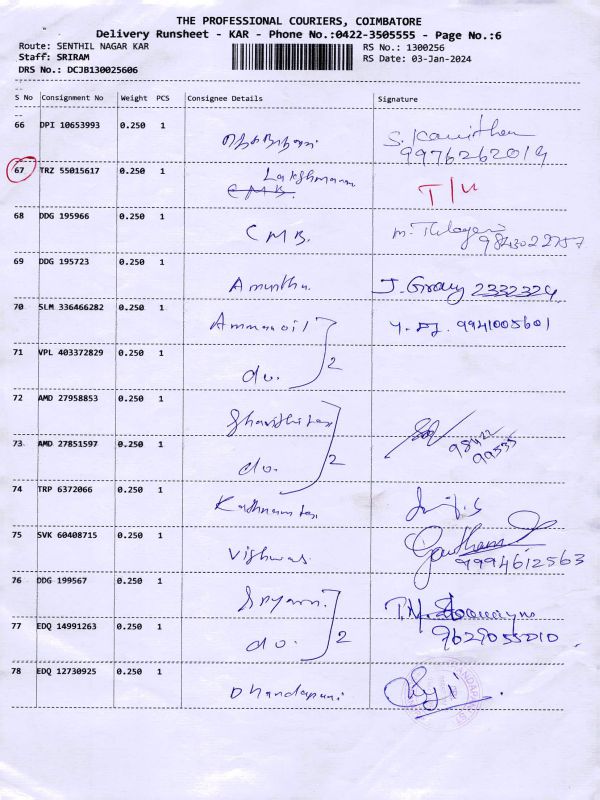 THE PROFESSIONAL COURIERS, COIMBATORE
Delivery Runsheet - KAR - Phone No.:0422-3505555 - Page No.:6
Route: SENTHIL NAGAR KAR RS No.: 1300256
Staff: SRIRAM RS Date: 03-Jan-2024
DRS No.: DCJB130025606
S No Consignment No Weight PCS Consignee Details Signature
66 DPI 10653993 0.250 1 S. Kavitha
9976262019
67 TRZ 55015617 0.250 1 Lakshmanan
CMB. T/U
68 DDG 195966 0.250 1 CMB.
9843022757
69 DDG 195723 0.250 1 Amirtha. J. Gracy 2332324
70 SLM 336466282 0.250 1 Amman oil 9941005601
71 VPL 403372829 0.250 1 do. 2
72 AMD 27958853 0.250 1
98422
99535
73 AMD 27851597 0.250 1 do. 2
74 TRP 6372066 0.250 1
75 SVK 60408715 0.250 1 Vishwas. Gautham
9994612563
76 DDG 199567 0.250 1
77 EDQ 14991263 0.250 1 do. 2 9629055010.
78 EDQ 12730925 0.250 1 Dhandapani